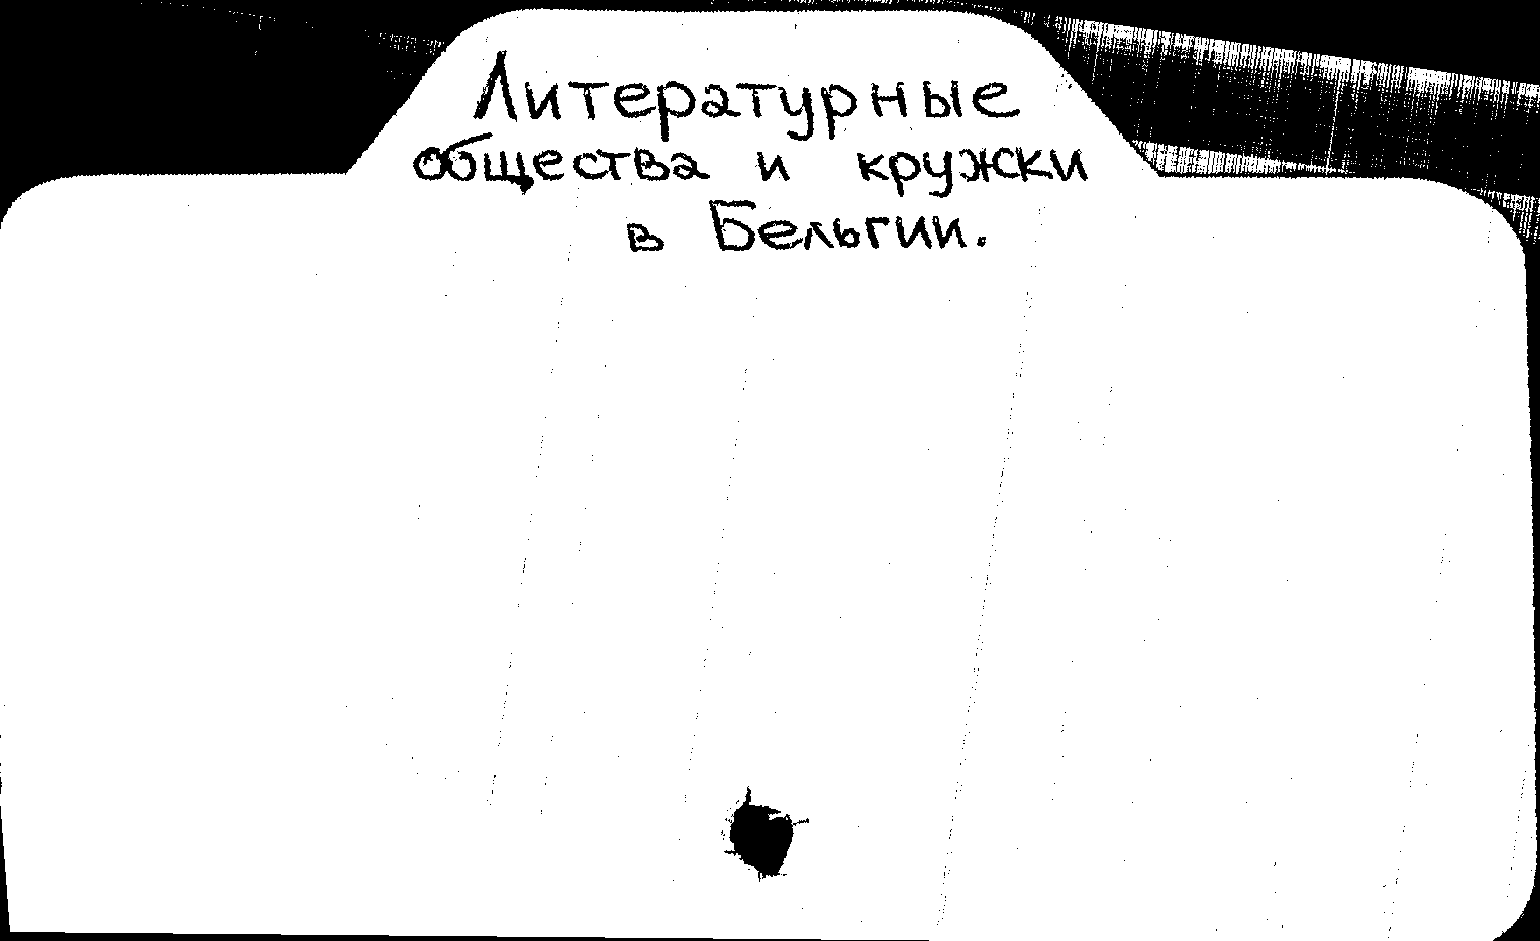 Литературные
общества и кружки
в Бельгии.